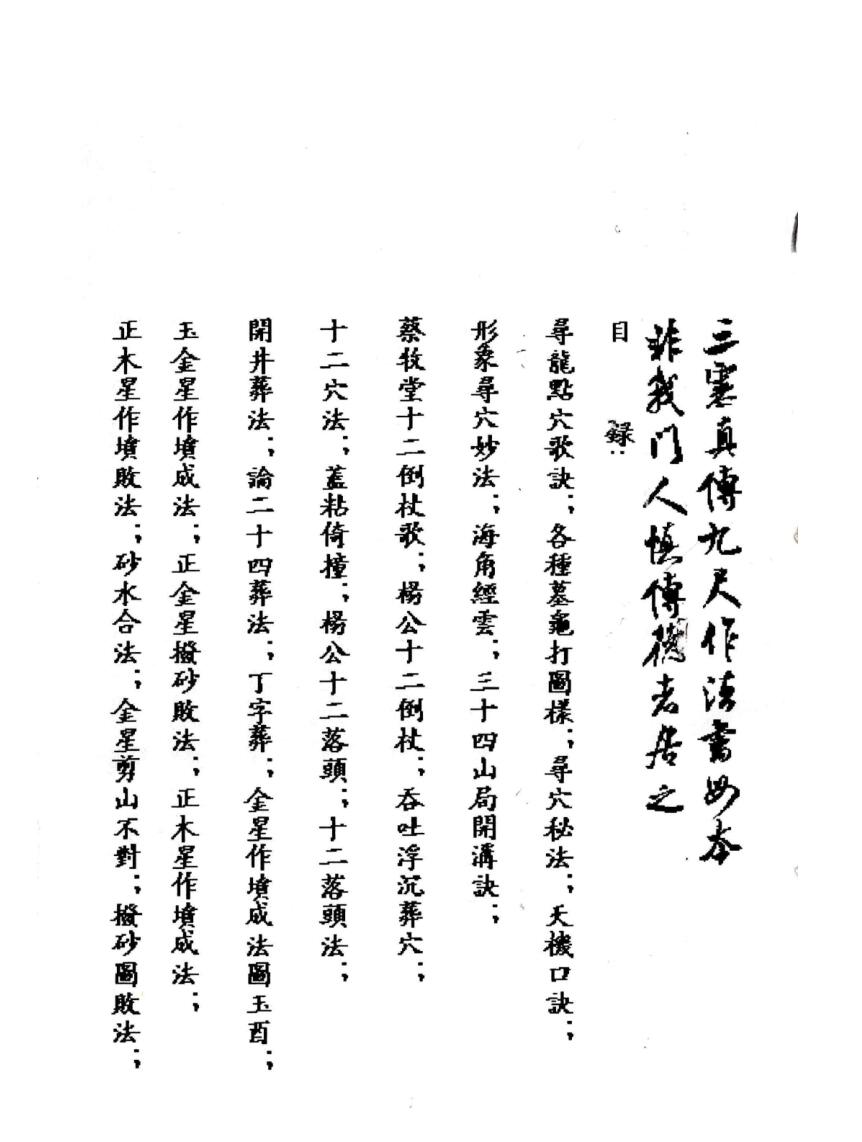 三寮真傳九尺作法書必本
非我門人慎傳後者居之
目錄：
尋龍點穴歌訣；各種墓龜打圖樣；尋穴秘法；天機口訣；
形象尋穴妙法；海角經雲；三十四山局開溝訣；
蔡牧堂十二倒杖歌；楊公十二倒杖；吞吐浮沉葬穴；
十二穴法；蓋粘倚撞；楊公十二落頭；十二落頭法；
開井葬法；論二十四葬法；丁字葬；金星作墳成法圖玉酉；
玉金星作墳成法；正金星撥砂敗法；正木星作墳成法；
正木星作墳敗法；砂水合法；金星剪山不對；撥砂圖敗法；